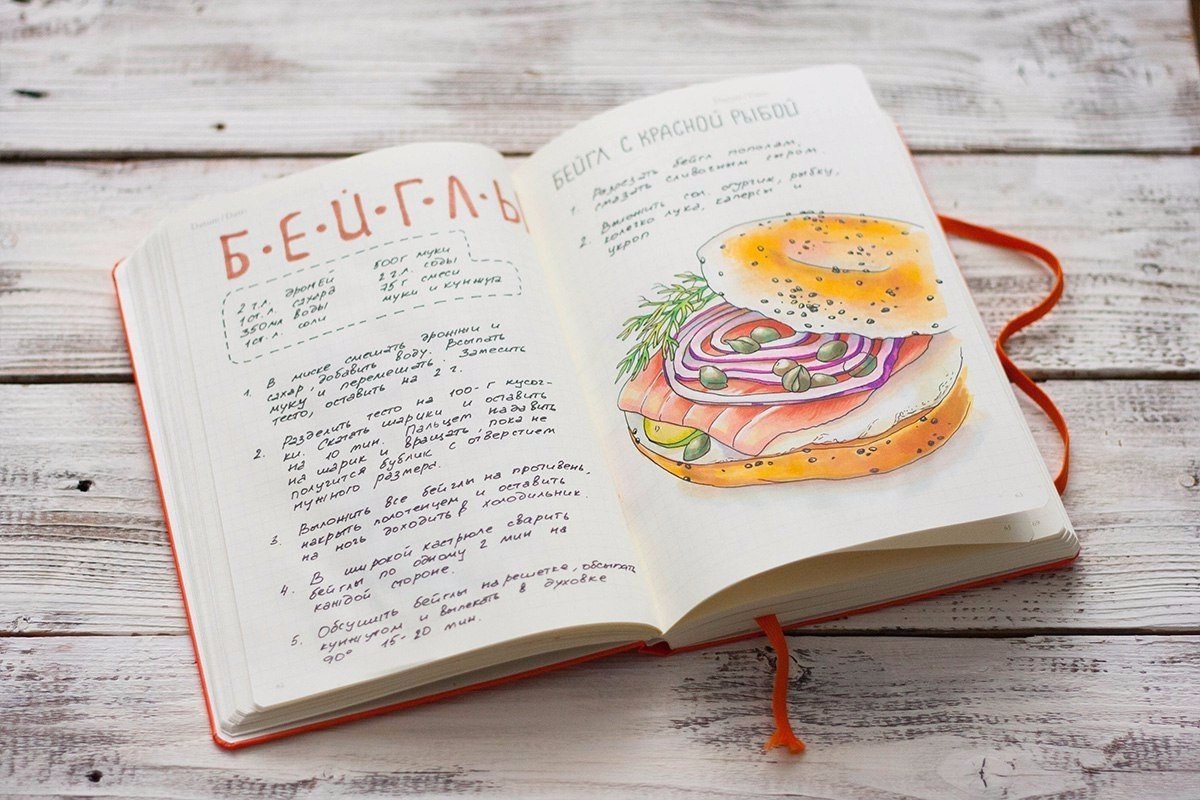 Datum / Date
Б·Е·Й·Г·Л·Ы
2 ч.л. дрожжей
1 ст.л. сахара
350 мл воды
1 ст.л. соли
500 г муки
2 ч.л. соды
25 г смеси
муки и кунжута
1. В миске смешать дрожжи и
сахар, добавить воду. Всыпать
муку и перемешать. Замесить
тесто, оставить на 2 г.
2. Разделить тесто на 100-г кусоч-
ки. Скатать шарики и оставить
на 10 мин. Пальцем надавить
на шарик и вращать, пока не
получится бублик с отверстием
нужного размера.
3. Выложить все бейглы на противень,
накрыть полотенцем и оставить
на ночь доходить в холодильник.
4. В широкой кастрюле сварить
бейглы по одному 2 мин на
каждой стороне.
5. Обсушить бейглы на решетке, обсыпать
кунжутом и выпекать в духовке
90° 15-20 мин.
БЕЙГЛ С КРАСНОЙ РЫБОЙ
1. Разрезать бейгл пополам,
смазать сливочным сыром.
2. Выложить сол. огурчик, рыбку,
колечко лука, каперсы и
укроп